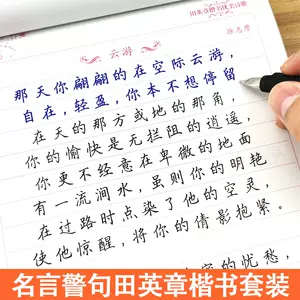 田英章楷书优美诗歌
云游
徐志摩
那天你翩翩的在空际云游，
自在，轻盈，你本不想停留
在天的那方或地的那角，
你的愉快是无拦阻的逍遥，
你更不经意在卑微的地面
有一流涧水，虽则你的明艳
在过路时点染了他的空灵，
使他惊醒，将你的倩影抱紧。
的忧愁，
名言警句田英章楷书套装